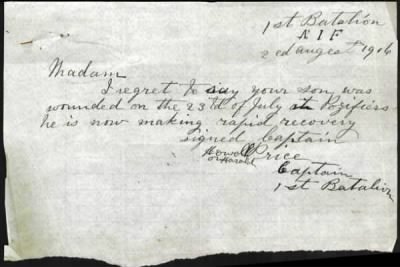 1st Batalion
A I F
2ed augest 1916
Madam
I regret to say your son, was
wounded on the 23rd of July at Pozifiers
he is now making rapid recovery
signed Captain
Howell Price
or Harold
Captain
1st Batalion